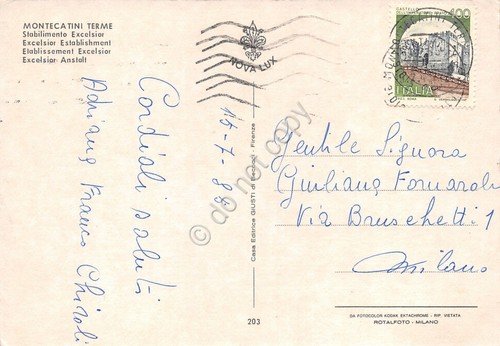 MONTECATINI TERME
Stabilimento Excelsior
Excelsior Establishment
Etablissement Excelsior
Excelsior Anstalt
Cordiali saluti
Adriana Franco Chiroli
15-7-88
NOVA LUX
Casa Editrice GIUSTI di S. Becocci - Firenze
do not copy
400
CASTELLO
DELL'IMPERATORE DI PRATO
ITALIA
Gentile Signora
Giuliana Fornaroli
Via Bruschetti 1
Milano
203
DA FOTOCOLOR KODAK EKTACHROME - RIP. VIETATA
ROTALFOTO - MILANO